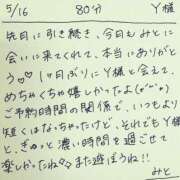 5/16 80分 Y様
先月に引き続き、今日もみとに
会いに来てくれて、本当にありがと
う♡♡ 1ヶ月ぶりにY様と会えて、
めちゃくちゃ嬉しかったよ(*´`*)
ご予約時間の関係で、いつもより
短くはなっちゃったけど、それでもY様
と、ぎゅっと濃い時間を過ごせて
楽しかったね♪♪ また遊ぼうね!!
みと